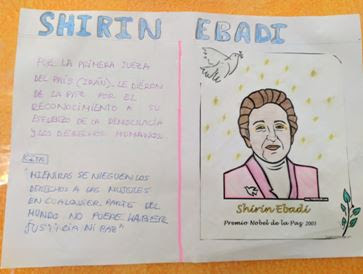 SHIRIN EBADI
FUE LA PRIMERA JUEZA
DEL PAÍS (IRÁN). LE DIERON
DE LA PAZ POR EL
RECONOCIMIENTO A SU
ESFUERZO DE LA DEMOCRACIA
Y LOS DERECHOS HUMANOS
CITA:
"MIENTRAS SE NIEGUEN LOS
DERECHOS A LAS MUJERES
EN CUALQUIER PARTE DEL
MUNDO NO PUEDE HABER
JUSTICIA NI PAZ"
Shirin Ebadi
Premio Nobel de la Paz 2003